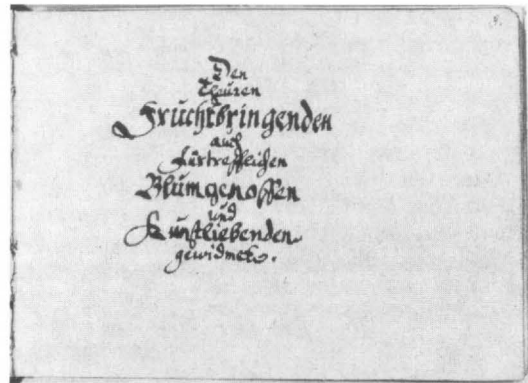 8.
Den
Theuren
Fruchtbringenden
auch
fürtrefflichen
Blumgenossen
und
Kunstliebenden
gewidmet.